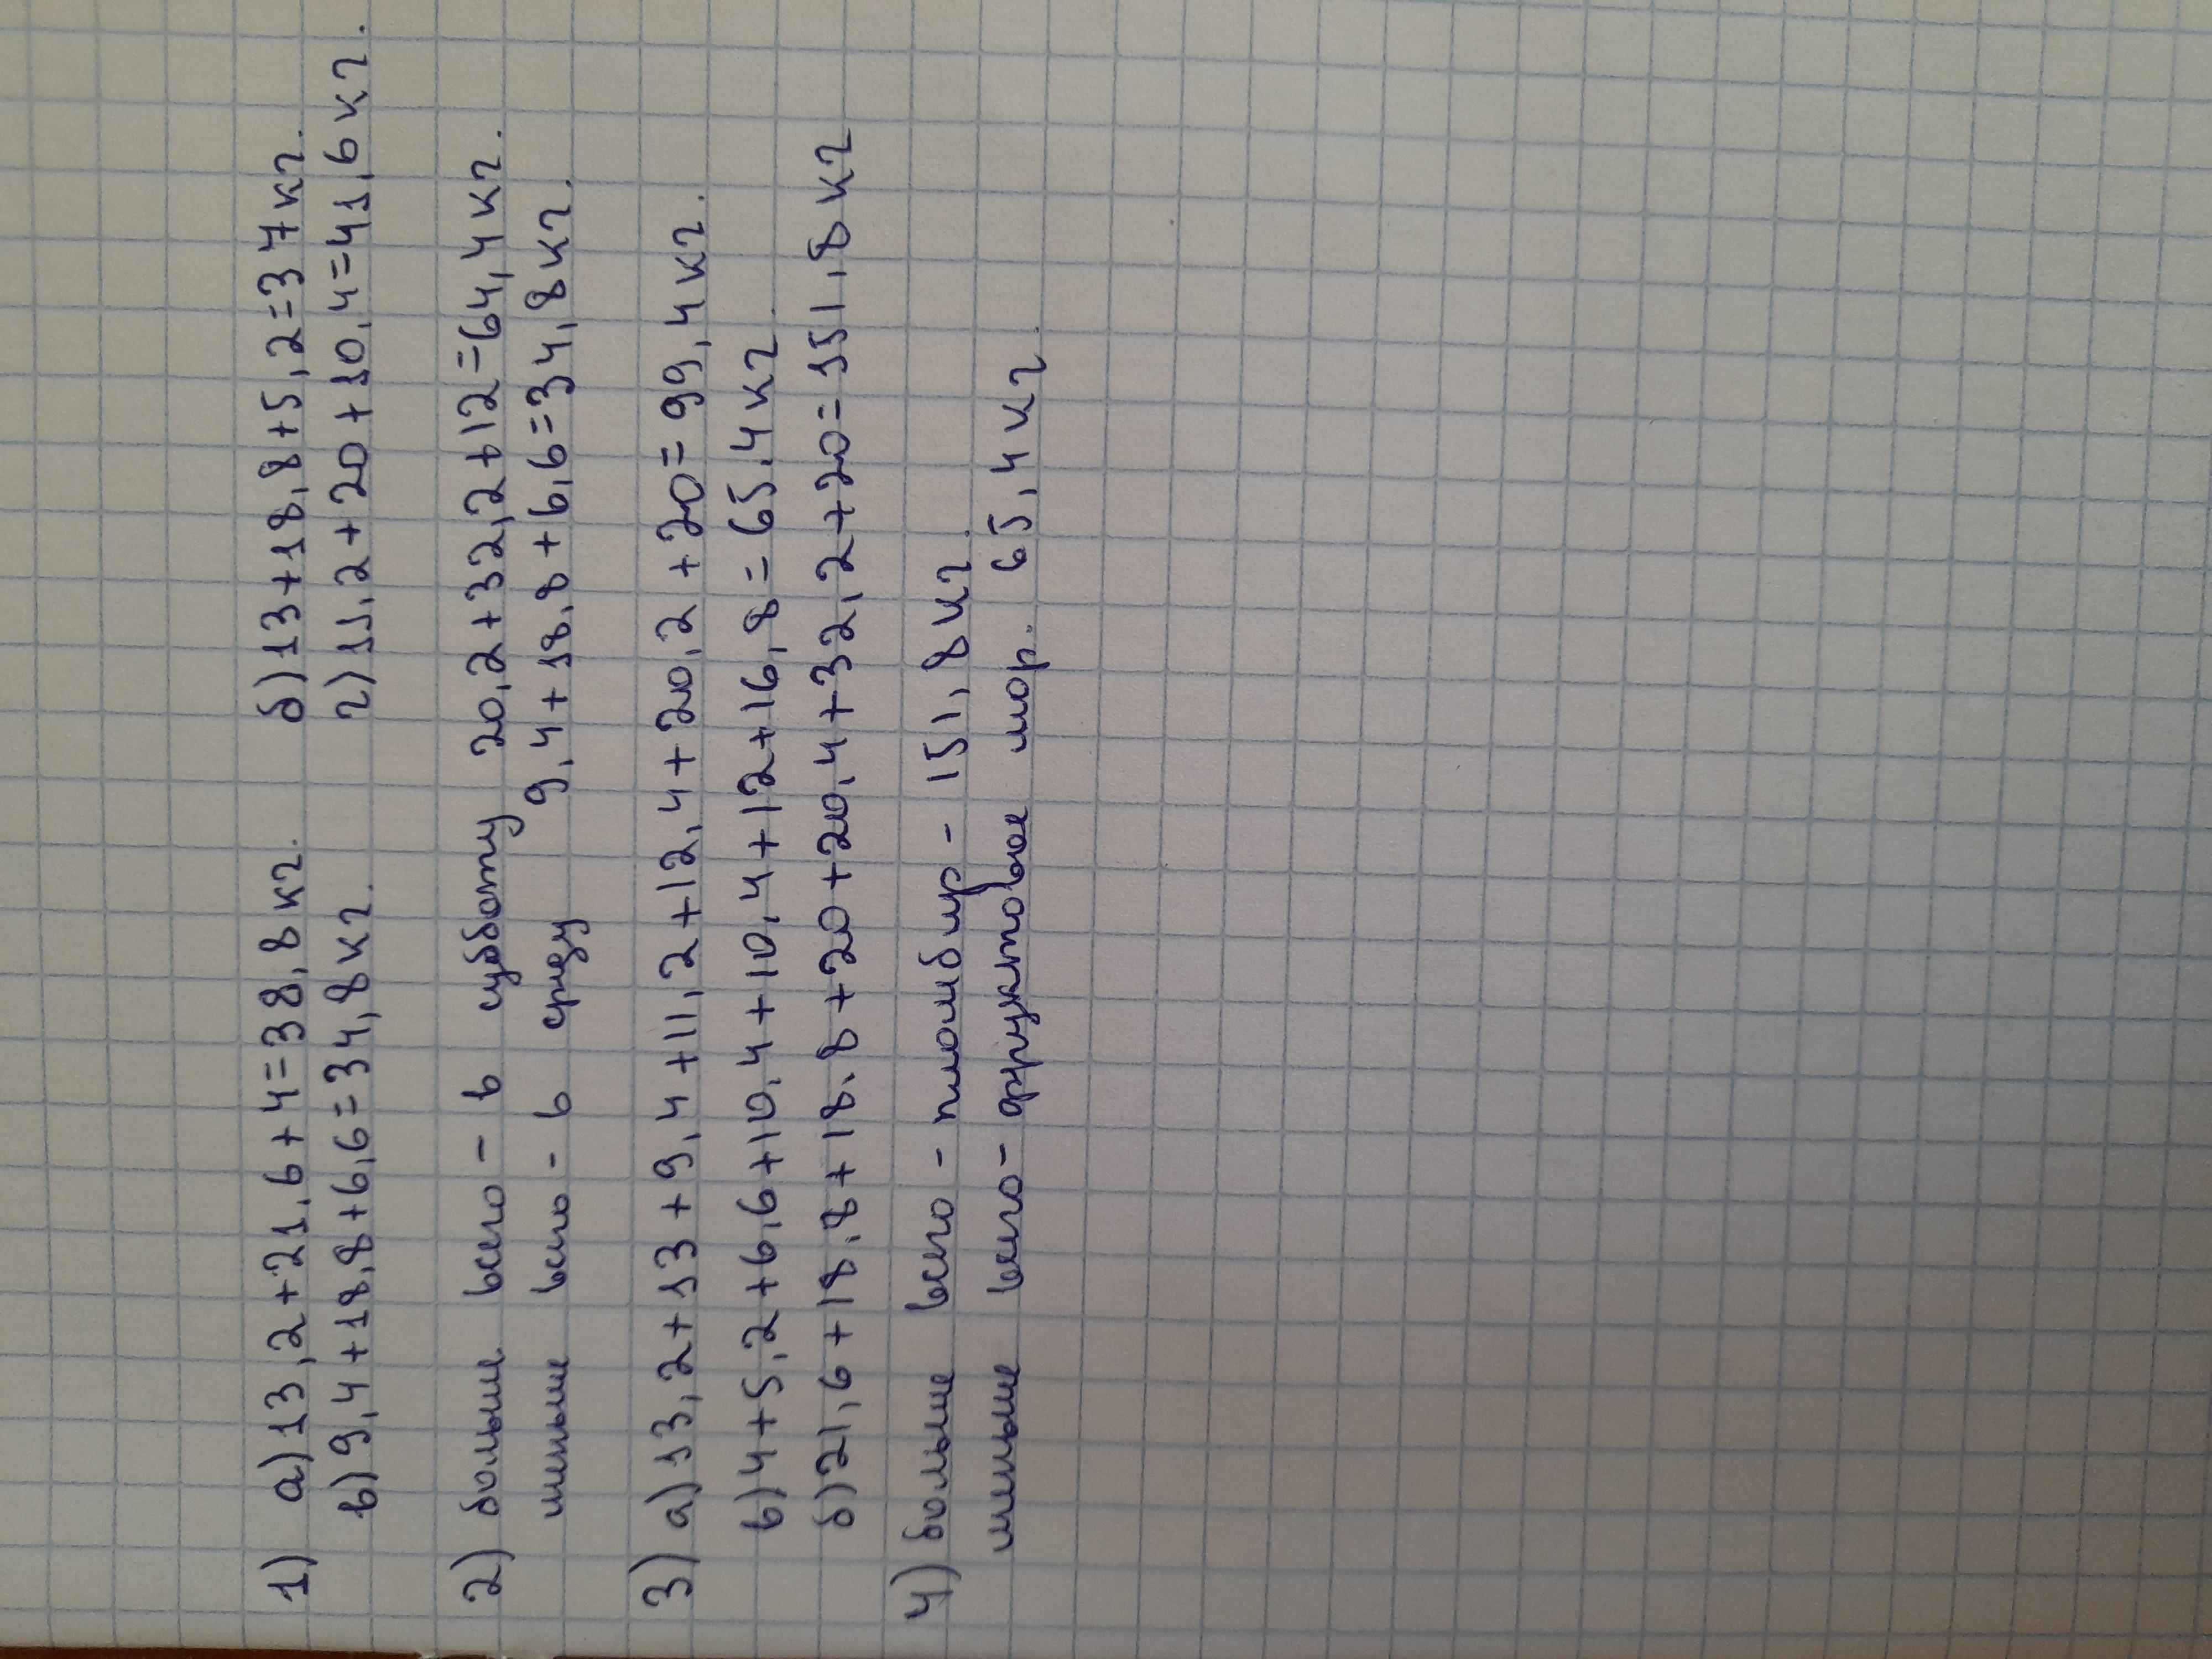 1) а) 13,2+21,6+4=38,8 кг. б) 13+18,8+5,2=37 кг.
в) 9,4+18,8+6,6=34,8 кг. г) 11,2+20+10,4=41,6 кг.
2) больше всего - в субботу 20,2+32,2+12=64,4 кг.
меньше всего - в среду 9,4+18,8+6,6=34,8 кг.
3) а) 13,2+13+9,4+11,2+12,4+20,2+20=99,4 кг.
в) 4+5,2+6,6+10,4+10,4+12+16,8=65,4 кг.
б) 21,6+18,8+18,8+20+20,4+32,2+20=151,8 кг
4) больше всего - пломбир - 151,8 кг.
меньше всего - фруктовое мор. 65,4 кг.